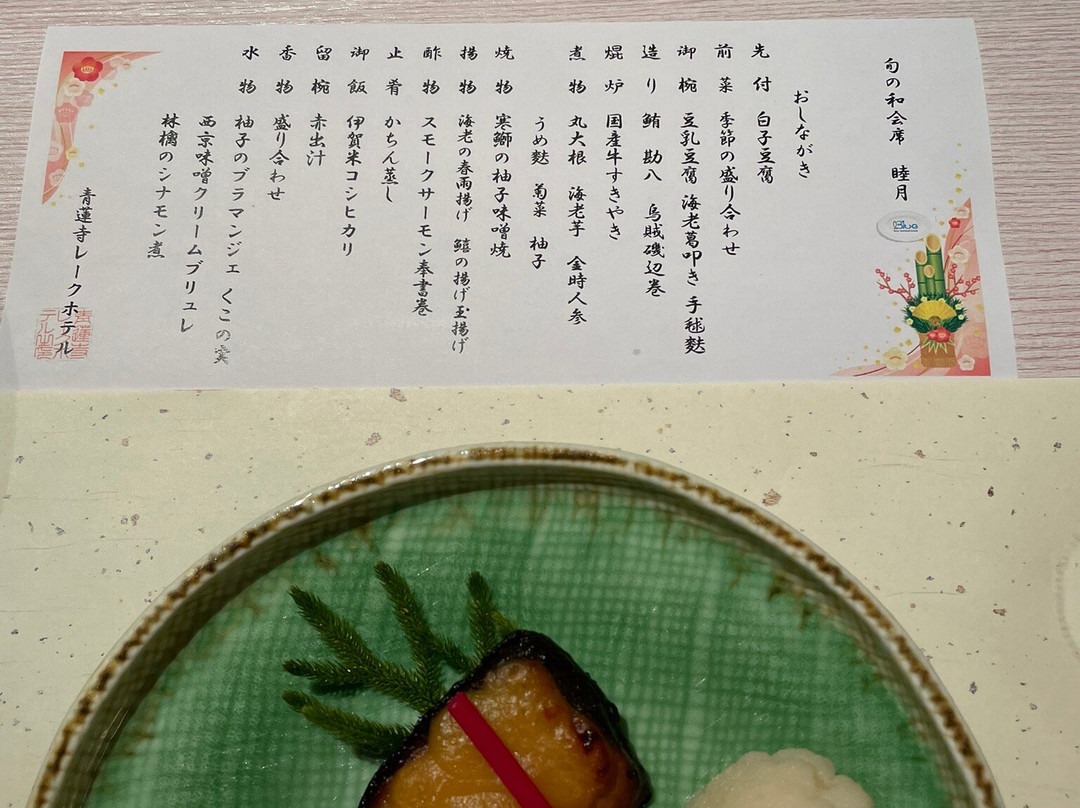 旬の和会席　睦月
おしながき
先付　白子豆腐
前菜　季節の盛り合わせ
御椀　豆乳豆腐　海老葛叩き　手毬麩
造り　鮪　勘八　烏賊磯辺巻
焜炉　国産牛すきやき
煮物　丸大根　海老芋　金時人参
うめ麩　菊菜　柚子
焼物　寒鰤の柚子味噌焼
揚物　海老の春雨揚げ　鱚の揚げ玉揚げ
酢物　スモークサーモン奉書巻
止肴　かちん蒸し
御飯　伊賀米コシヒカリ
留椀　赤出汁
香物　盛り合わせ
水物　柚子のブラマンジェ　くこの実
西京味噌クリームブリュレ
林檎のシナモン煮
青蓮寺レークホテル
Blue